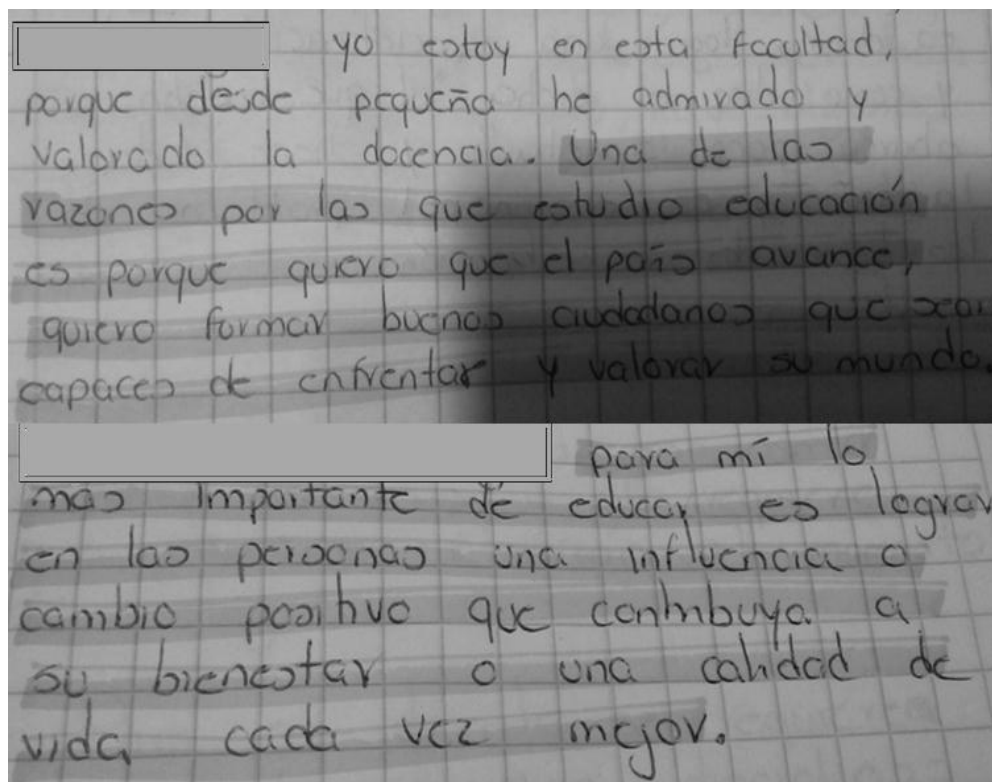 yo estoy en esta facultad,
porque desde pequeña he admirado y
valorado la docencia. Una de las
razones por las que estudio educación
es porque quiero que el país avance,
quiero formar buenos ciudadanos que sean
capaces de enfrentar y valorar su mundo.
para mí lo
mas importante de educar es lograr
en las personas una influencia o
cambio positivo que contribuya a
su bienestar o una calidad de
vida cada vez mejor.